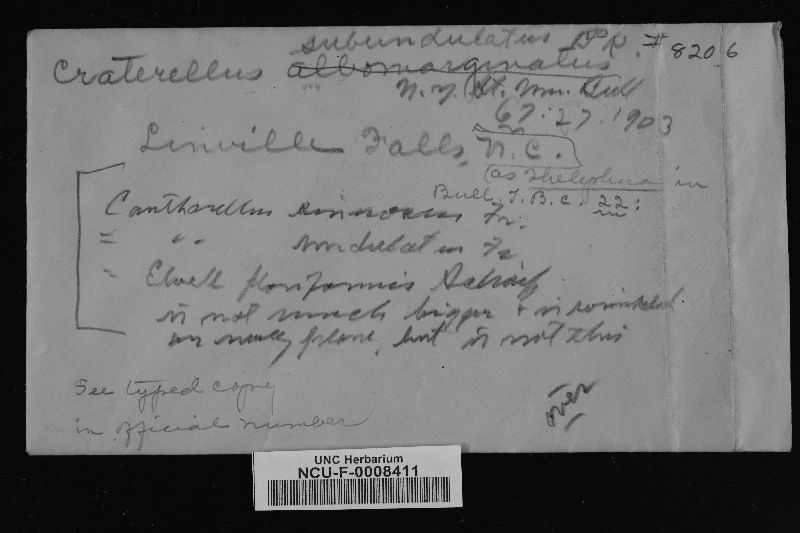 subundulatus Pk. # 8206
Craterellus albomarginatus
N.Y. St. Mus. Bull
67: 27. 1903
Linville Falls, N.C.
(as Thelephora in
Bull. T. B. C. 22:
Cantharellus sinuosus Fr.
= " " undulatus Fr.
= Elvella floriformis Schaeff
is not much bigger + is
plane, but is not this
See typed copy
in official number
over
UNC Herbarium
NCU-F-0008411